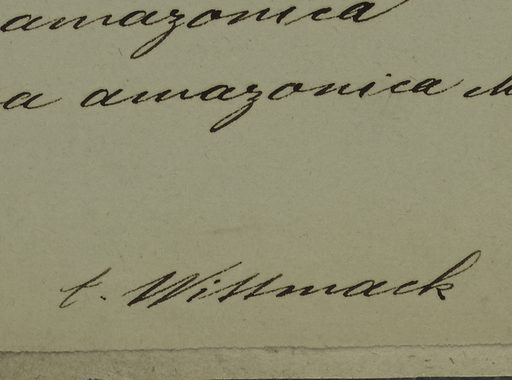 amazonica
a amazonica M
t. Wittmack